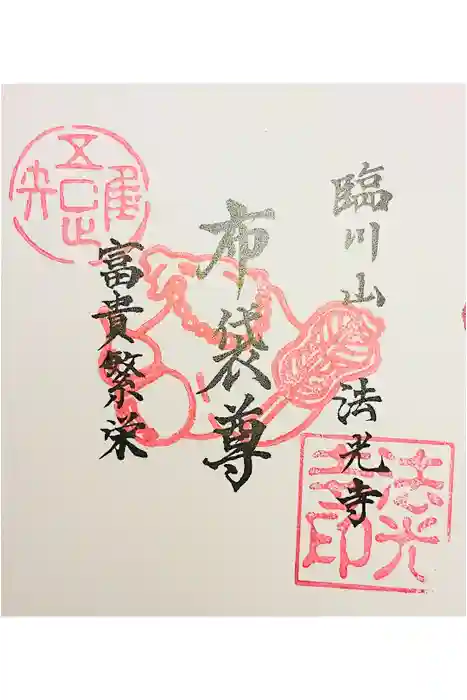 臨川山 法光寺
布袋尊
富貴繁栄
吾唯足知
法光寺印